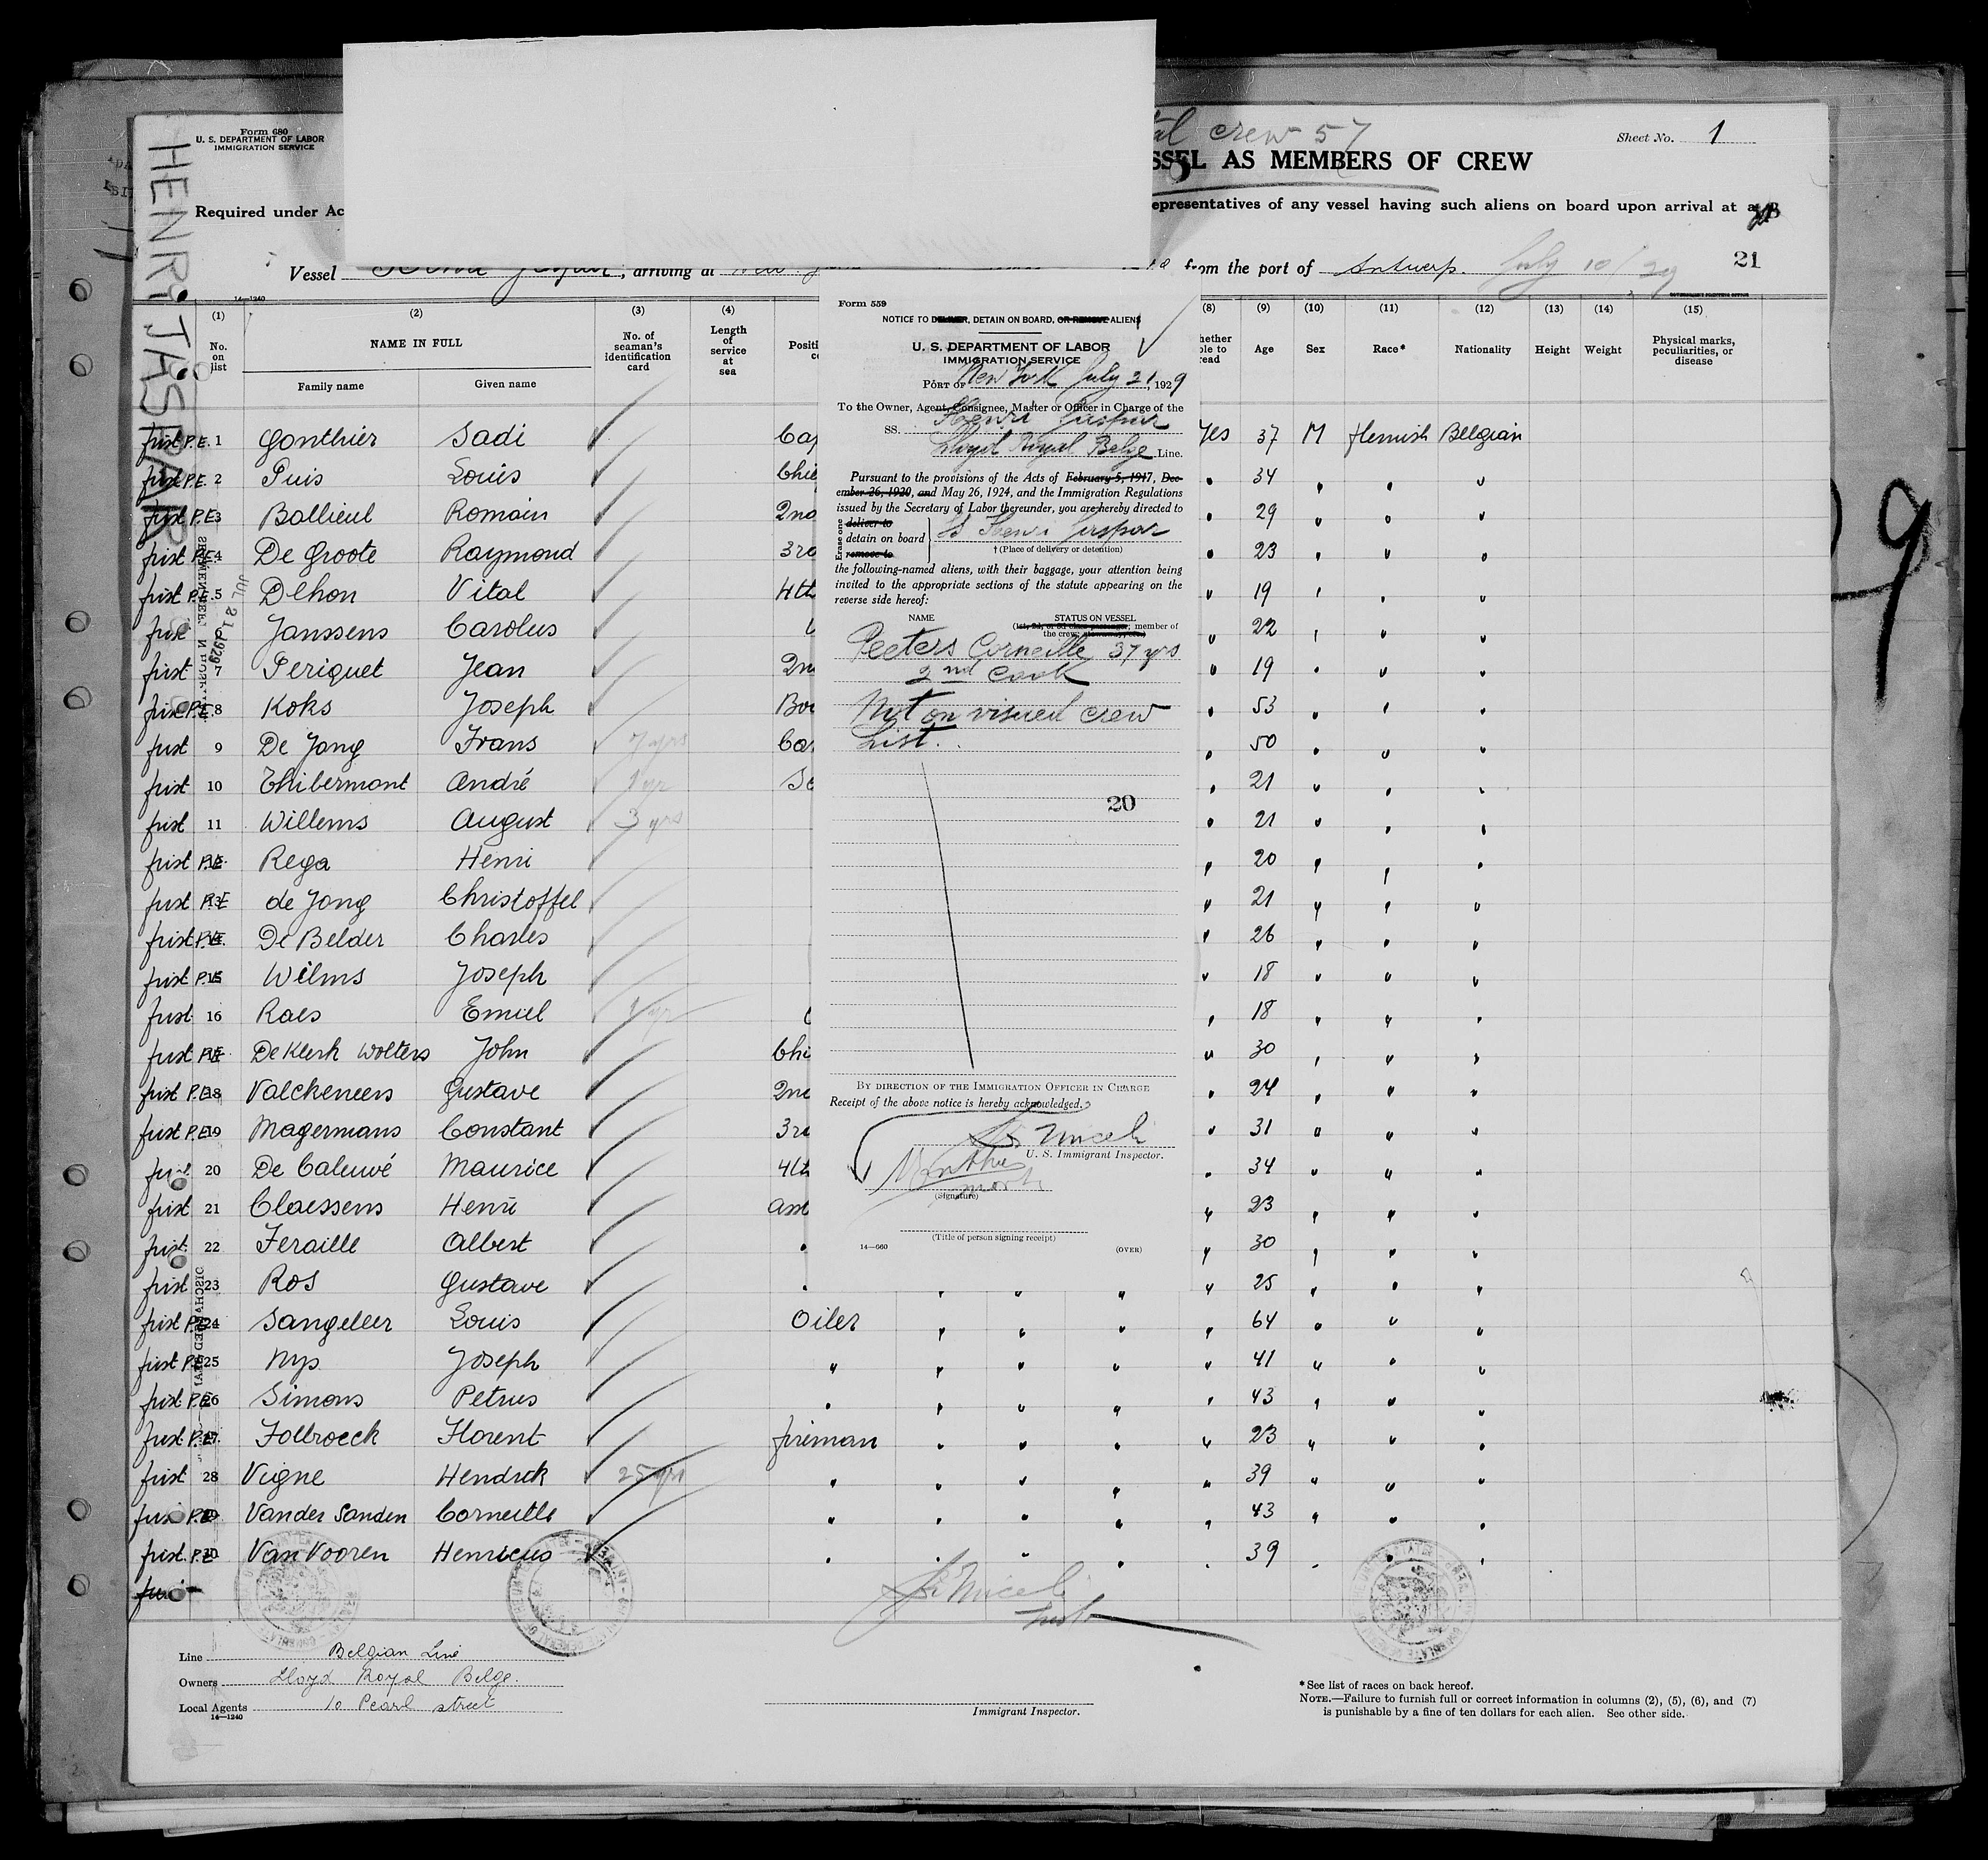 Form 680
U. S. DEPARTMENT OF LABOR
IMMIGRATION SERVICE
HENRI JASPAR
crew 57
Sheet No. 1
SSEL AS MEMBERS OF CREW
Required under Ac
epresentatives of any vessel having such aliens on board upon arrival at a
Vessel Henri Jaspar, arriving at
from the port of Antwerp. July 10/29
21
14—1240
(1) No. on list
(2) NAME IN FULL
Family name Given name
(3) No. of seaman's identification card
(4) Length of service at sea
Positi
(8) hether ble to read
(9) Age
(10) Sex
(11) Race*
(12) Nationality
(13) Height
(14) Weight
(15) Physical marks, peculiarities, or disease
first P.E. 1 Gonthier Sadi Cap Yes 37 M Flemish Belgian
first P.E. 2 Puis Louis Chie " 34 " " "
first P.E. 3 Ballieul Romain 2nd " 29 " " "
first P.E. 4 De Groote Raymond 3rd " 23 " " "
first P.E. 5 Dehon Vital 4th " 19 " " "
first Janssens Carolus " 22 " " "
first 7 Periquet Jean 2n " 19 " " "
first P.E. 8 Koks Joseph Bo " 53 " " "
first 9 De Jong Frans 7 yrs Car " 50 " " "
first 10 Thibermont André 1 yr " 21 " " "
first 11 Willems August 3 yrs " 21 " " "
first P.E. Rega Henri " 20 " " "
first P.E. de Jong Christoffel " 21 " " "
first P.E. De Belder Charles " 26 " " "
first P.E. 15 Wilms Joseph " 18 " " "
first 16 Raes Emiel 1 yr " 18 " " "
first P.E. De Klerk Wolters John Chi " 30 " " "
first P.E. 18 Valckeneers Gustave 2nd " 24 " " "
first P.E. 19 Magermans Constant 3rd " 31 " " "
first 20 De Caluwé Maurice 4th " 34 " " "
first 21 Claessens Henri asst " 23 " " "
first 22 Feraille Albert " " 30 " " "
first 23 Ros Gustave " " " " " 25 " " "
first P.E. 24 Sangeleer Louis Oiler " " " " 64 " " "
first P.E. 25 Nys Joseph " " " " " 41 " " "
first P.E. 26 Simons Petrus " " " " " 43 " " "
first P.E. 27 Folbroeck Florent fireman " " " " 23 " " "
first 28 Vigne Hendrik 25 yrs " " " " " 39 " " "
first P.E. 29 Vander Sanden Corneille " " " " " 43 " " "
first P.E. 30 Van Vooren Henricus " " " " " 39 " " "
JUL 21 1929
Form 559
NOTICE TO DELIVER, DETAIN ON BOARD, OR REMOVE ALIENS
U. S. DEPARTMENT OF LABOR
IMMIGRATION SERVICE
PORT OF New York July 21, 1929
To the Owner, Agent, Consignee, Master or Officer in Charge of the
SS. Henri Jaspar
Lloyd Royal Belge Line.
Pursuant to the provisions of the Acts of February 5, 1917, Dec-
ember 26, 1920, and May 26, 1924, and the Immigration Regulations
issued by the Secretary of Labor thereunder, you are hereby directed to
Erase one
deliver to
detain on board
remove to
SS Henri Jaspar
† (Place of delivery or detention)
the following-named aliens, with their baggage, your attention being
invited to the appropriate sections of the statute appearing on the
reverse side hereof:
NAME
STATUS ON VESSEL
(1st, 2d, or 3d class passenger, member of
the crew, stowaway, etc.)
Peeters Corneille 37 yrs
2nd Cook
Not on visaed crew
List.
20
BY DIRECTION OF THE IMMIGRATION OFFICER IN CHARGE
Receipt of the above notice is hereby acknowledged.
U. S. Immigrant Inspector.
(Signature)
(Title of person signing receipt)
14—660
(OVER)
9
Line Belgian Line
Owners Lloyd Royal Belge.
Local Agents 10 Pearl street
14—1240
Immigrant Inspector.
* See list of races on back hereof.
NOTE.—Failure to furnish full or correct information in columns (2), (5), (6), and (7)
is punishable by a fine of ten dollars for each alien. See other side.